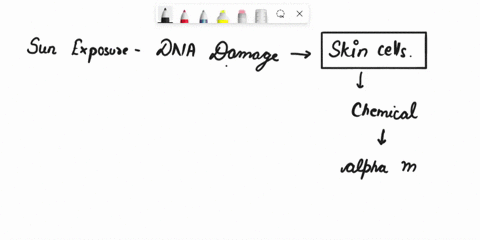 Sun Exposure - DNA Damage → Skin cells.
↓
Chemical
↓
alpha m